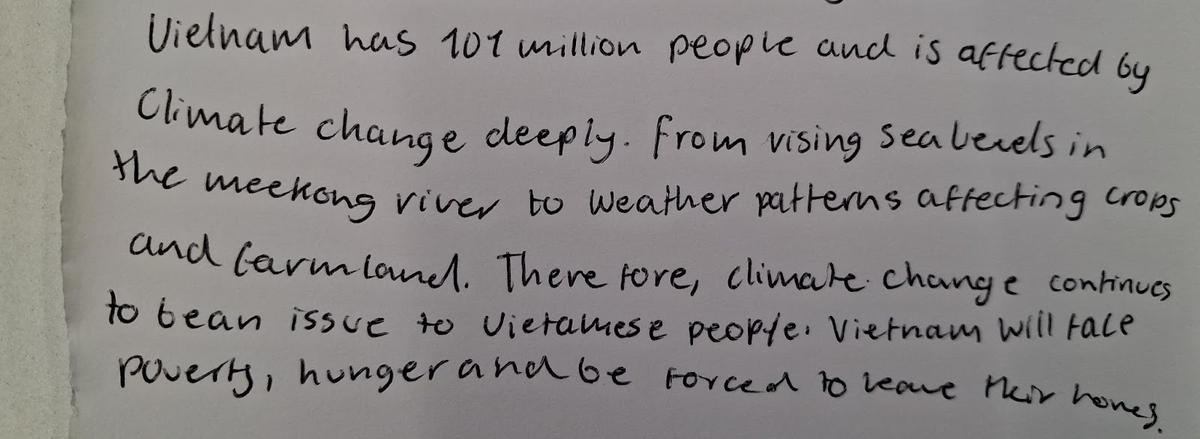 Vietnam has 101 million people and is affected by
Climate change deeply. From rising sea levels in
the meekong river to weather patterns affecting crops
and farmland. Therefore, climate change continues
to be an issue to Vietamese people. Vietnam will face
poverty, hunger and be forced to leave their homes.